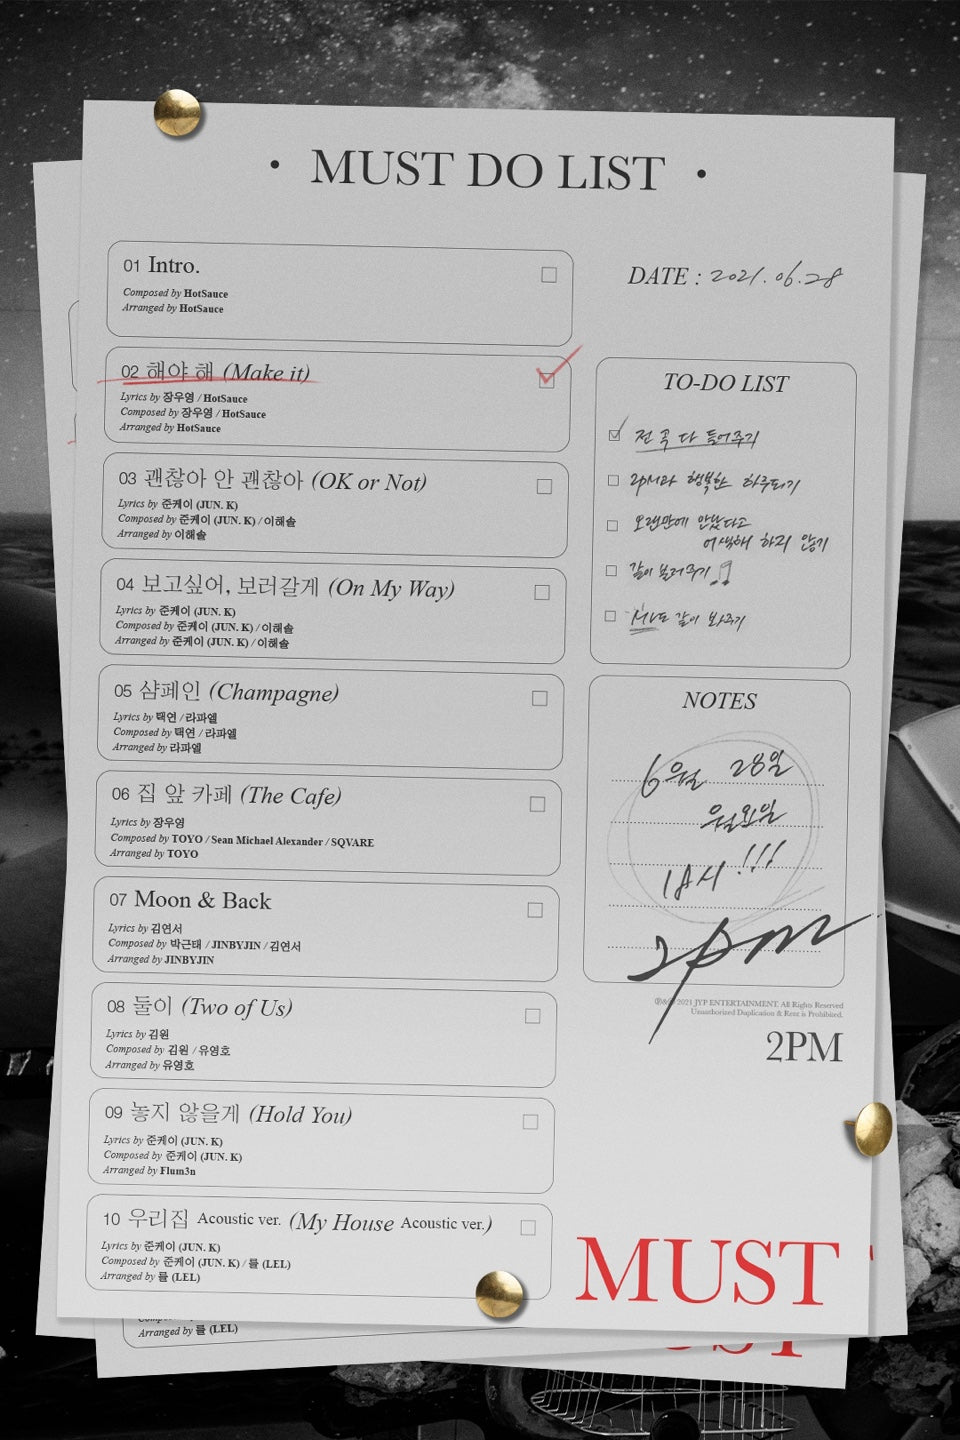 • MUST DO LIST •
01 Intro.
Composed by HotSauce
Arranged by HotSauce
02 해야 해 (Make it)
Lyrics by 장우영 / HotSauce
Composed by 장우영 / HotSauce
Arranged by HotSauce
03 괜찮아 안 괜찮아 (OK or Not)
Lyrics by 준케이 (JUN. K)
Composed by 준케이 (JUN. K) / 이해솔
Arranged by 이해솔
04 보고싶어, 보러갈게 (On My Way)
Lyrics by 준케이 (JUN. K)
Composed by 준케이 (JUN. K) / 이해솔
Arranged by 준케이 (JUN. K) / 이해솔
05 샴페인 (Champagne)
Lyrics by 택연 / 라파엘
Composed by 택연 / 라파엘
Arranged by 라파엘
06 집 앞 카페 (The Cafe)
Lyrics by 장우영
Composed by TOYO / Sean Michael Alexander / SQVARE
Arranged by TOYO
07 Moon & Back
Lyrics by 김연서
Composed by 박근태 / JINBYJIN / 김연서
Arranged by JINBYJIN
08 둘이 (Two of Us)
Lyrics by 김원
Composed by 김원 / 유영호
Arranged by 유영호
09 놓지 않을게 (Hold You)
Lyrics by 준케이 (JUN. K)
Composed by 준케이 (JUN. K)
Arranged by Flum3n
10 우리집 Acoustic ver. (My House Acoustic ver.)
Lyrics by 준케이 (JUN. K)
Composed by 준케이 (JUN. K) / 를 (LEL)
Arranged by 를 (LEL)
Arranged by 를 (LEL)
DATE : 2021.06.28
TO-DO LIST
전 곡 다 들어주기
2PM과 행복한 하루되기
오랜만에 만났다고
어색해 하지 않기
같이 불러주기
MV도 같이 봐주기
NOTES
6월 28일
월요일
18시 !!!
2pm
℗&© 2021 JYP ENTERTAINMENT. All Rights Reserved
Unauthorized Duplication & Rent is Prohibited.
2PM
MUST